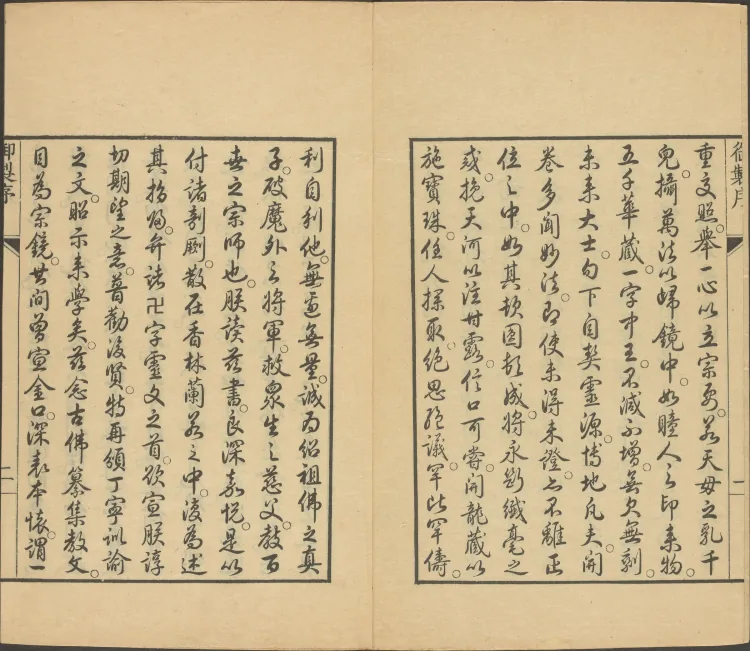 御製序
一
重交照。舉一心以立宗要。若天母之乳千
兒。攝萬法以歸鏡中。如瞳人之印來物。
五千華藏。一字中王。不減不增。無欠無剩。
未來大士。句下自契靈源。博地凡夫。開
卷多聞妙法。即使未得未證。亦不離正
位之中。如其頓圓頓成。將永斷纖毫之
惑。挽天河以注甘露。信口可嘗。開龍藏以
施寶珠。任人探取。絕思絕議。罕比罕儔。
利自利他。無邊無量。誠為紹祖佛之真
子。破魔外之將軍。救眾生之慈父。教百
世之宗師也。朕讀茲書。良深嘉悅。是以
付諸剞劂。散在香林蘭若之中。復為述
其指歸。弁諸卍字靈文之首。欲宣朕諄
切期望之意。普勸後賢。特再頒丁寧訓諭
之文。昭示來學矣。茲念古佛纂集教文。
目為宗鏡。其間曾宣金口。深表本懷。謂一
御製序
二